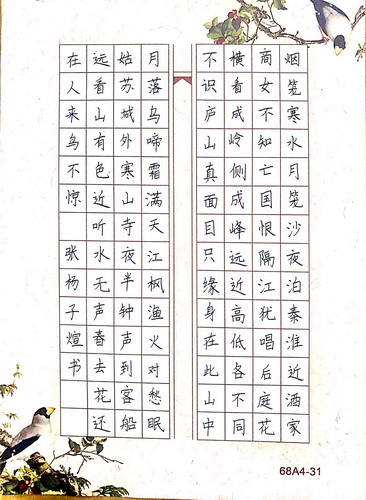 烟笼寒水月笼沙夜泊秦淮近酒家
商女不知亡国恨隔江犹唱后庭花
横看成岭侧成峰远近高低各不同
不识庐山真面目只缘身在此山中
月落乌啼霜满天江枫渔火对愁眠
姑苏城外寒山寺夜半钟声到客船
远看山有色近听水无声春去花还
在人来鸟不惊 张杨子煊书
68A4-31